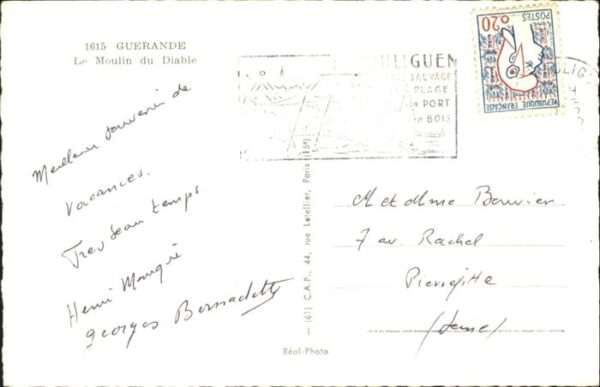 1615 GUERANDE
Le Moulin du Diable
Meilleur souvenir de
vacances.
Tres beau temps
Henri Mauqué
Georges Bernadette
ULIGUEN
SAUVAGE
PLAGE
PORT
BOIS
0.20
POSTES
REPUBLIQUE FRANÇAISE
ULIG
M et Mme Bouvier
7 av Rachel
Pierrefitte
(Seine)
— (61) C.A.P., 44, rue Letellier, Paris (15e)
Réal-Photo